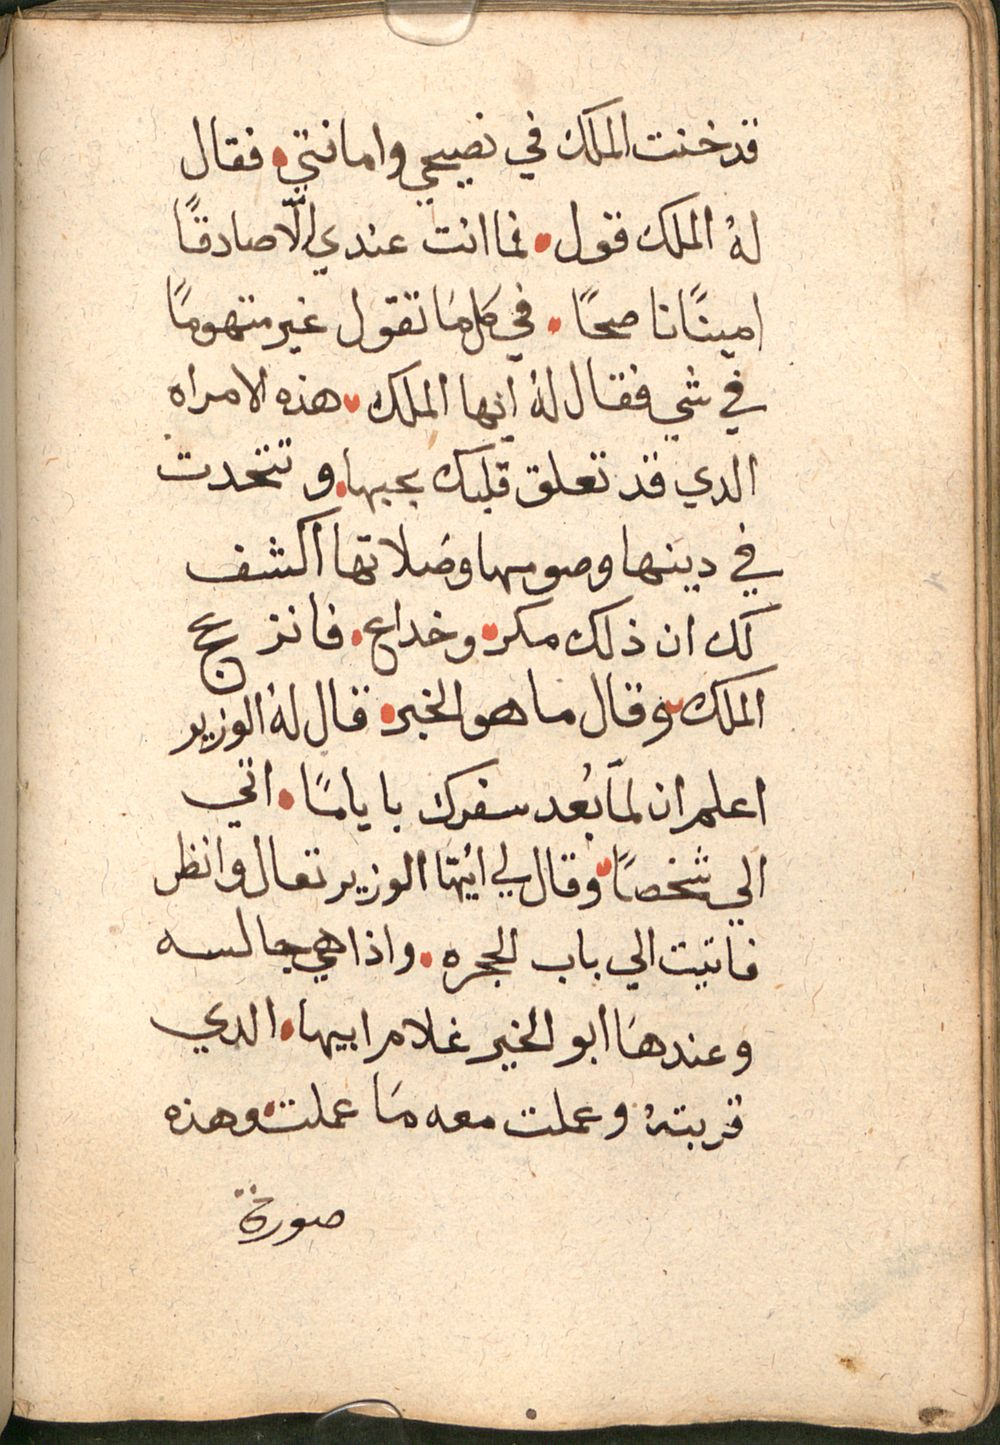 قد خنت الملك في نصيحي وامانتي • فقال
لهُ الملك قول • فما انت عندي الّا صادقًا
امينًا ناصحًا • في كل مَا تقول غير متهومًا
في شي فقال لهُ ايها الملك • هذه الامراه
الدي قد تعلق قلبك بحبها • وتتحدت
في دينها وصومها وصَلاتها اكشف
لك ان ذلك مكر • وخداع • فانزعج
الملك • وقال ما هو الخبر • قال لهُ الوزير
اعلم ان لمّا بَعُد سفرك باياماً • اتي
الي شخصًا • وقال لي أيّها الوزير تعال وانظر
فاتيت الي باب الحجره • واذا هي جالسه
وعندهَا ابو الخير غلام ابيها • الدي
قربتهُ وعملت معه مَا عملت • وهذه
صورة